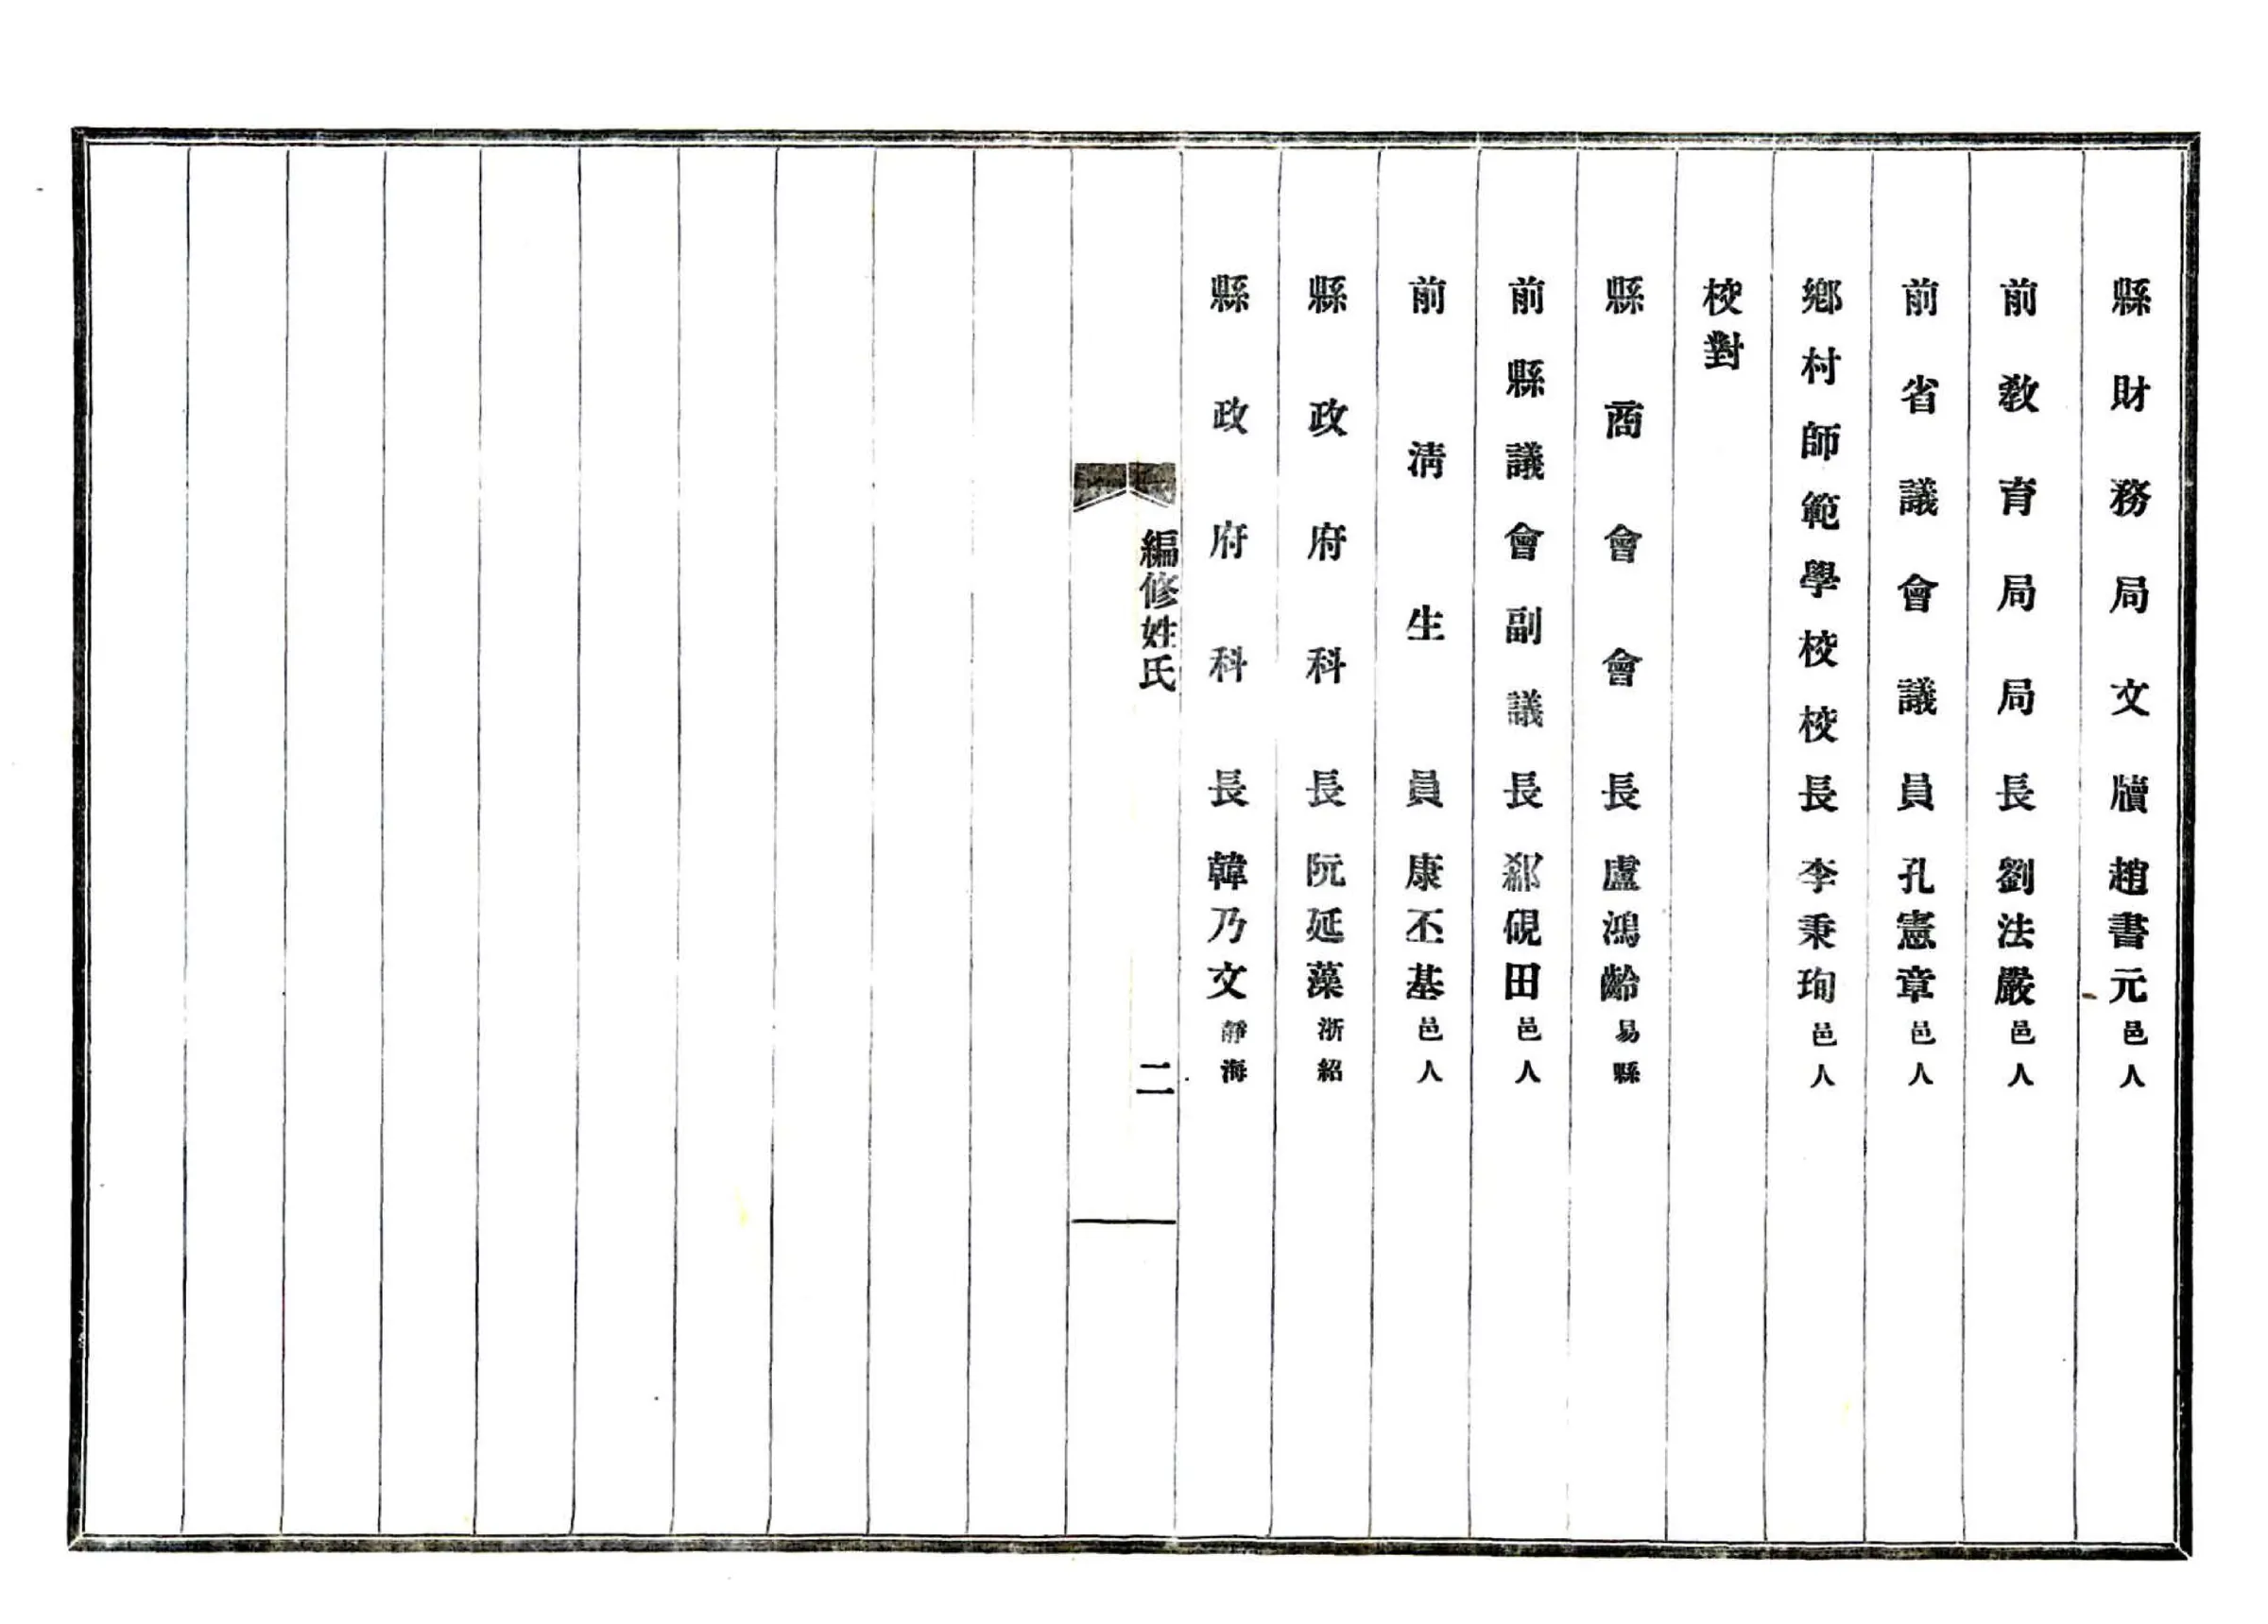 縣財務局文牘趙書元邑人
前教育局局長劉法嚴邑人
前省議會議員孔憲章邑人
鄉村師範學校校長李秉珣邑人
校對
縣商會會長盧鴻齡易縣
前縣議會副議長郄硯田邑人
前清生員康丕基邑人
縣政府科長阮延藻浙紹
縣政府科長韓乃文靜海
編修姓氏
二